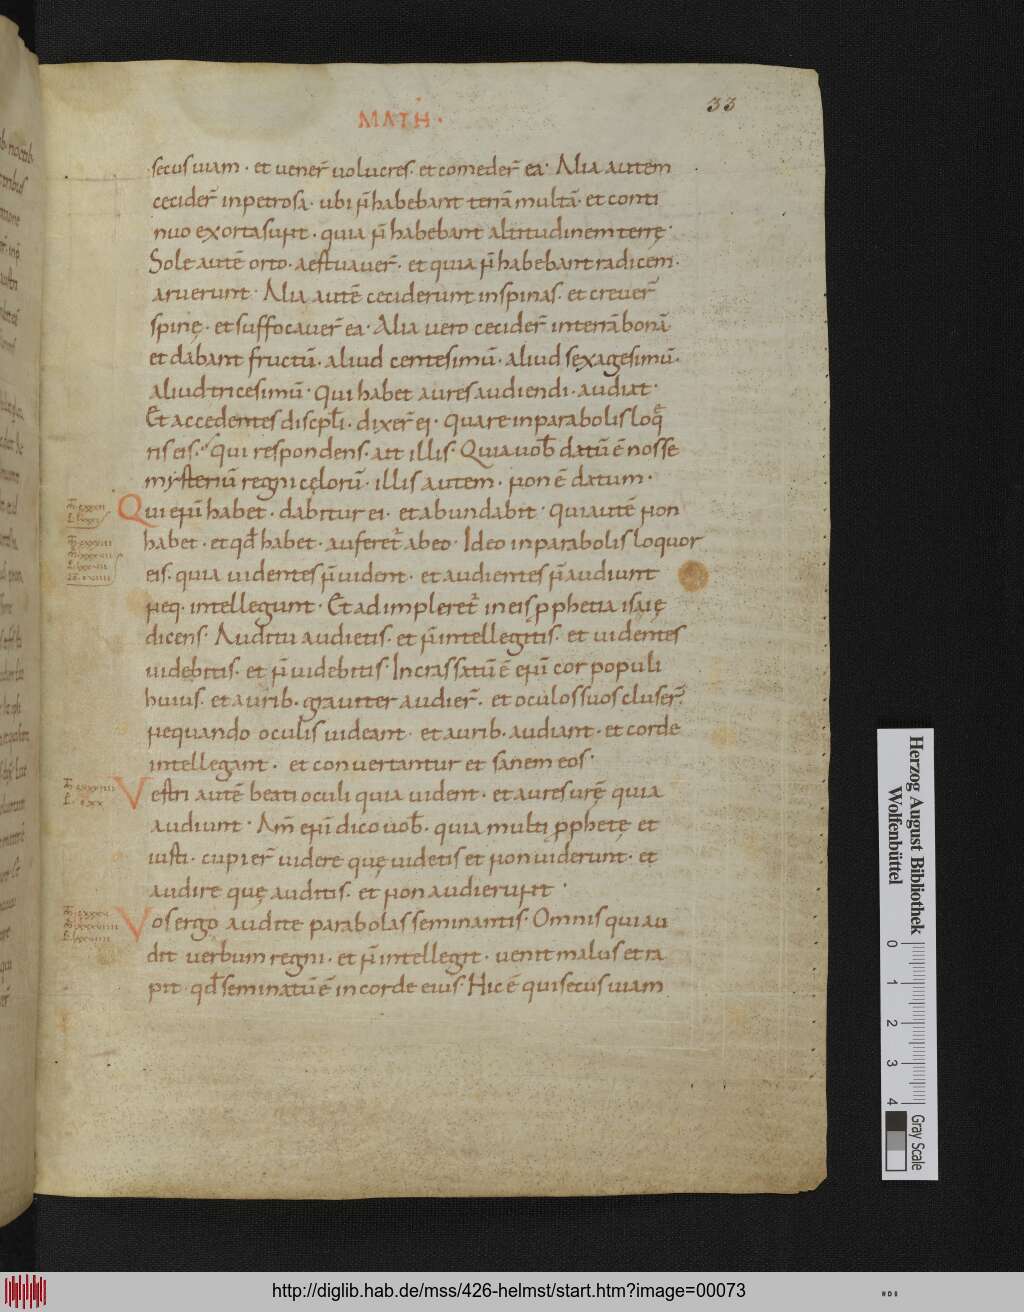 MATH·
33
secus uiam · et uener̄ uolucres · et comeder̄ ea · Alia autem
cecider̄ in petrosa · ubi ñ habebant terrā multā · et conti
nuo exorta sunt · quia ñ habebant altitudinem terrę ·
Sole autē orto · aestuauer̄ · et quia ñ habebant radicem ·
aruerunt · Alia autē ceciderunt in spinas · et creuer̄
spinę · et suffocauer̄ ea · Alia uero cecider̄ in terrā bonā
et dabant fructū · aliud centesimū · aliud sexagesimū ·
aliud tricesimū · Qui habet aures audiendi · audiat ·
Et accedentes discpl̄i · dixer̄ ei · Quare in parabolis loq̄
ris eis · Qui respondens · ait illis · Quia uob̄ datū ē nosse
mysteriū regni cęlorū · illis autem · non ē datum ·
Qui eñi habet · dabitur ei · et abundabit · qui autē non
habet · et qd̄ habet · auferet̄ ab eo · Ideo in parabolis loquor
eis · quia uidentes ñ uident · et audientes ñ audiunt
neq · intellegunt · Et adimpleret̄ in eis p̱phetia isaię
dicens · Auditu audietis · et ñ intellegitis · et uidentes
uidebitis · et ñ uidebitis · Incrassatū ē eñi cor populi
huius · et aurib · grauiter audier̄ · et oculos suos cluser̄ ·
nequando oculis uideant · et aurib · audiant · et corde
intellegant · et conuertantur et sanem eos ·
Vestri autē beati oculi quia uident · et aures urę̄ quia
audiunt · Am̄ eñi dico uob̄ · quia multi p̱phetę et
iusti · cupier̄ uidere quę uidetis et non uiderunt · et
audire quę auditis · et non audierunt ·
Vos ergo audite parabolas seminantis · Omnis qui au
dit uerbum regni · et ñ intellegit · uenit malus et ra
pit · qd̄ seminatū ē in corde eius · Hic ē qui secus uiam
Herzog August Bibliothek
Wolfenbüttel
0 1 2 3 4
Gray Scale
http://diglib.hab.de/mss/426-helmst/start.htm?image=00073